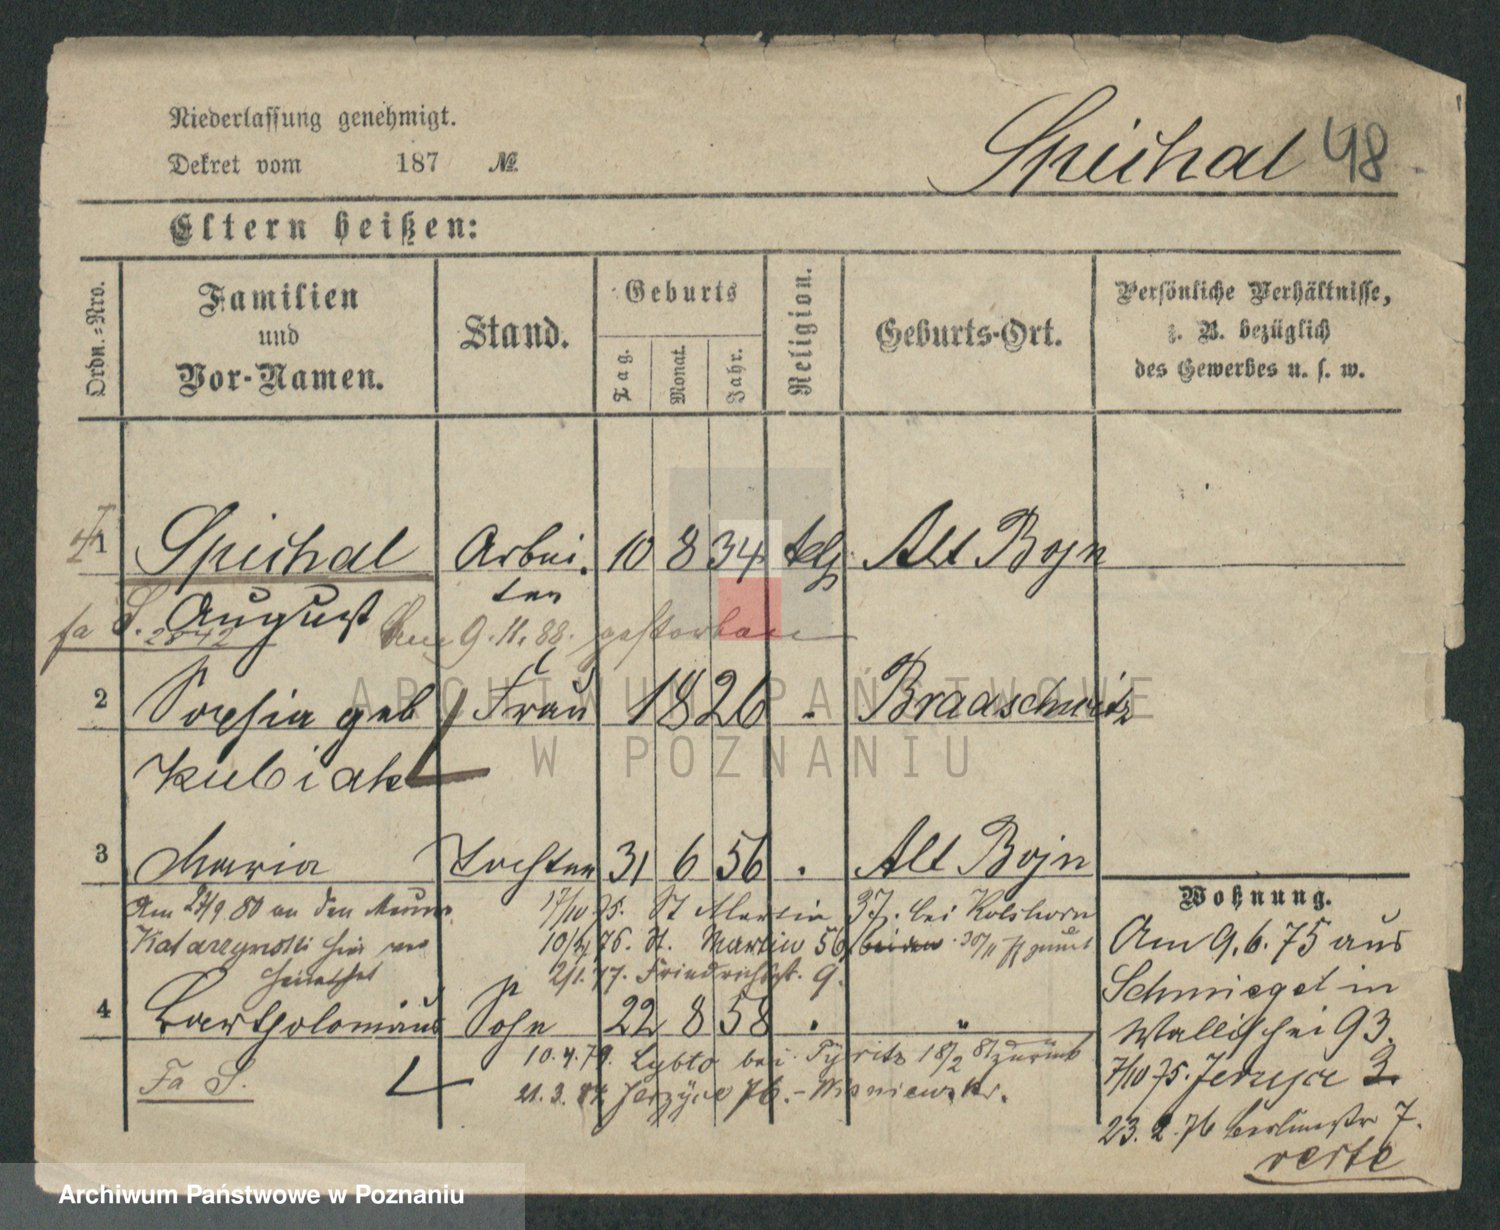 Niederlassung genehmigt.
Dekret vom 187 №
Spichal 48
Eltern heißen:
Ordn.-Nro.
Familien
und
Vor-Namen.
Stand.
Geburts
Tag.
Monat.
Jahr.
Religion.
Geburts-Ort.
Persönliche Verhältnisse,
z. B. bezüglich
des Gewerbes u. s. w.
1 Spichal Arbei- 10 8 34 kth Alt Bojn
August ter
fa S. 2842 9.11.88. gestorben
2 Sophia geb Frau 1826 . Bradschwitz
Kubiak
3 Maria Tochter 31 6 56 . Alt Bojn
Am 27/9 80 an den Maurer 17/10 75. St Martin 37. bei Kolshorn
Katarzynski hier ver 10/4 76. St. Martin 56
heirathet 2/1.77. Friedrichst. 9.
4 Bartholomäus Sohn 22 8 58 . "
10.4.79. bei Pyritz 18/2 81 zurück
Fa S. 21.3. Jerzyce 76.- Wisniewski.
Wohnung.
Am 9.6.75 aus
Schmiegel in
Wallischei 93.
7/10 75. Jerzyce 3.
23.2.76 Berlinerstr 7.
verte
ARCHIWUM PAŃSTWOWE
W POZNANIU
Archiwum Państwowe w Poznaniu